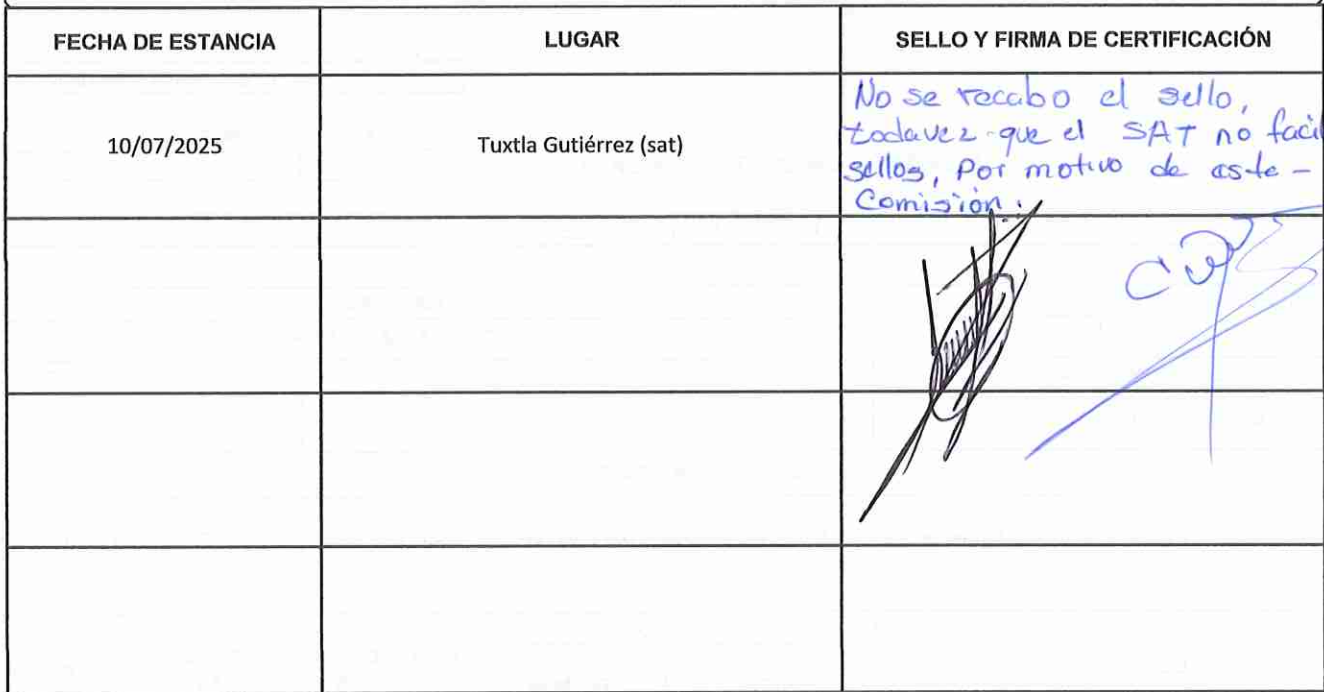 FECHA DE ESTANCIA
LUGAR
SELLO Y FIRMA DE CERTIFICACIÓN
10/07/2025
Tuxtla Gutiérrez (sat)
No se recabo el sello,
todavez que el SAT no facil
sellos, Por motivo de este -
Comisión.